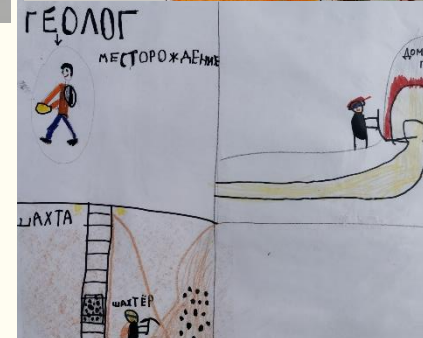 ГЕОЛОГ
МЕСТОРОЖДЕНИЕ
ШАХТА
ШАХТЁР